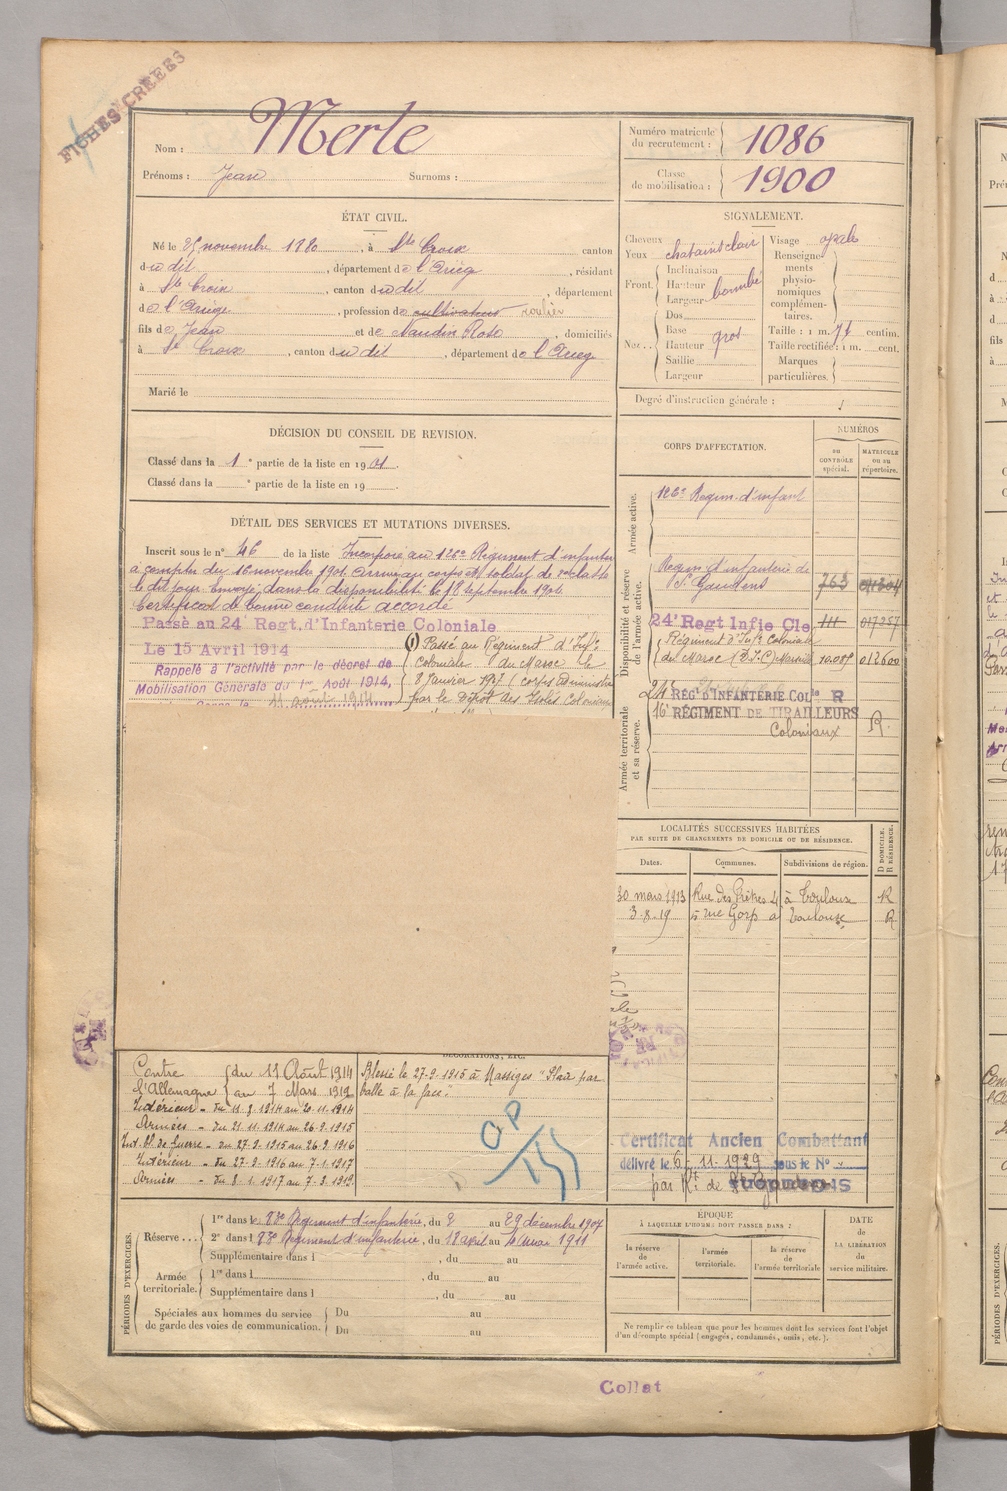 FICHES CRÉÉES
Nom : Merle
Prénoms : Jean Surnoms :
Numéro matricule du recrutement : 1086
Classe de mobilisation : 1900
ÉTAT CIVIL.
Né le 25 novembre 1880, à Ste Croix canton
du dit, département de l'Ariège, résidant
à Ste Croix, canton du dit, département
de l'Ariège, profession de cultivateur roulier
fils de Jean et de Naudin Rose, domiciliés
à Ste Croix, canton du dit, département de l'Ariège
Marié le
SIGNALEMENT.
Cheveux Yeux chatain clair
Front. Inclinaison Hauteur Largeur bombé
Nez.. Dos Base Hauteur Saillie Largeur gros
Visage ovale
Renseignements physionomiques complémentaires.
Taille : 1 m. 74 centim.
Taille rectifiée : 1 m. cent.
Marques particulières.
Degré d'instruction générale :
DÉCISION DU CONSEIL DE REVISION.
Classé dans la 1e partie de la liste en 1901.
Classé dans la e partie de la liste en 19
DÉTAIL DES SERVICES ET MUTATIONS DIVERSES.
Inscrit sous le n° 46 de la liste Incorporé au 126e Régiment d'infanterie
à compter du 16 novembre 1901. Arrivé au corps et soldat de 2e classe
le dit jour. Envoyé dans la disponibilité le 18 septembre 1904
Certificat de bonne conduite accordé
Passé au 24e Regt. d'Infanterie Coloniale
Le 15 Avril 1914
Rappelé à l'activité par le décret de
Mobilisation Générale du 1er Août 1914,
11 août 1914
(1) Passé au Régiment d'Infie
coloniale du Maroc le
8 Janvier 1917 (corps administré
par le Dépôt des Isolés Coloniaux
CORPS D'AFFECTATION.
NUMÉROS
AU CONTRÔLE spécial.
MATRICULE OU AU RÉPERTOIRE.
Armée active.
126e Régim. d'infant
Disponibilité et réserve de l'armée active.
Régim d'infanterie de St Gaudens 763
24e Regt Infie Cle 111
Régiment d'Infie Coloniale
du Maroc (D.I.C) Marseille 10.089 012600
Armée territoriale et sa réserve.
24e RÉGt D'INFANTERIE COLle R
16e RÉGIMENT DE TIRAILLEURS
Coloniaux R.
LOCALITÉS SUCCESSIVES HABITÉES
PAR SUITE DE CHANGEMENTS DE DOMICILE OU DE RÉSIDENCE.
Dates. Communes. Subdivisions de région. D DOMICILE. R RÉSIDENCE.
30 mars 1913 Rue des Prêtres 4 à Toulouse R
3-8-19 5 rue Gorp à Toulouse R
DÉCORATIONS, ETC.
Contre l'Allemagne du 11 Août 1914 au 7 Mars 1919
Intérieur - du 11.8.1914 au 20.11.1914
Armées - du 21.11.1914 au 26.9.1915
Int. Bl. de Guerre - du 27.9.1915 au 26.9.1916
Intérieur - du 27.9.1916 au 7.1.1917
Armées - du 8.1.1917 au 7.3.1919
Blessé le 27-9-1915 à Massiges "Plaie par
balle à la face".
Certificat Ancien Combattant
délivré le 6-11-1929 sous le N°
par Rt de
PÉRIODES D'EXERCICES.
Réserve... 1re dans le 83e Régiment d'infanterie, du 2 au 29 décembre 1907
2e dans l 83e Régiment d'infanterie, du 18 avril au 4 mai 1911
Supplémentaire dans l , du au
Armée territoriale. 1re dans l , du au
Supplémentaire dans l , du au
Spéciales aux hommes du service de garde des voies de communication. Du au
Du au
ÉPOQUE
À LAQUELLE L'HOMME DOIT PASSER DANS :
la réserve de l'armée active.
l'armée territoriale.
la réserve de l'armée territoriale
DATE de LA LIBÉRATION du service militaire.
Ne remplir ce tableau que pour les hommes dont les services font l'objet
d'un décompte spécial (engagés, condamnés, omis, etc.).
Collat